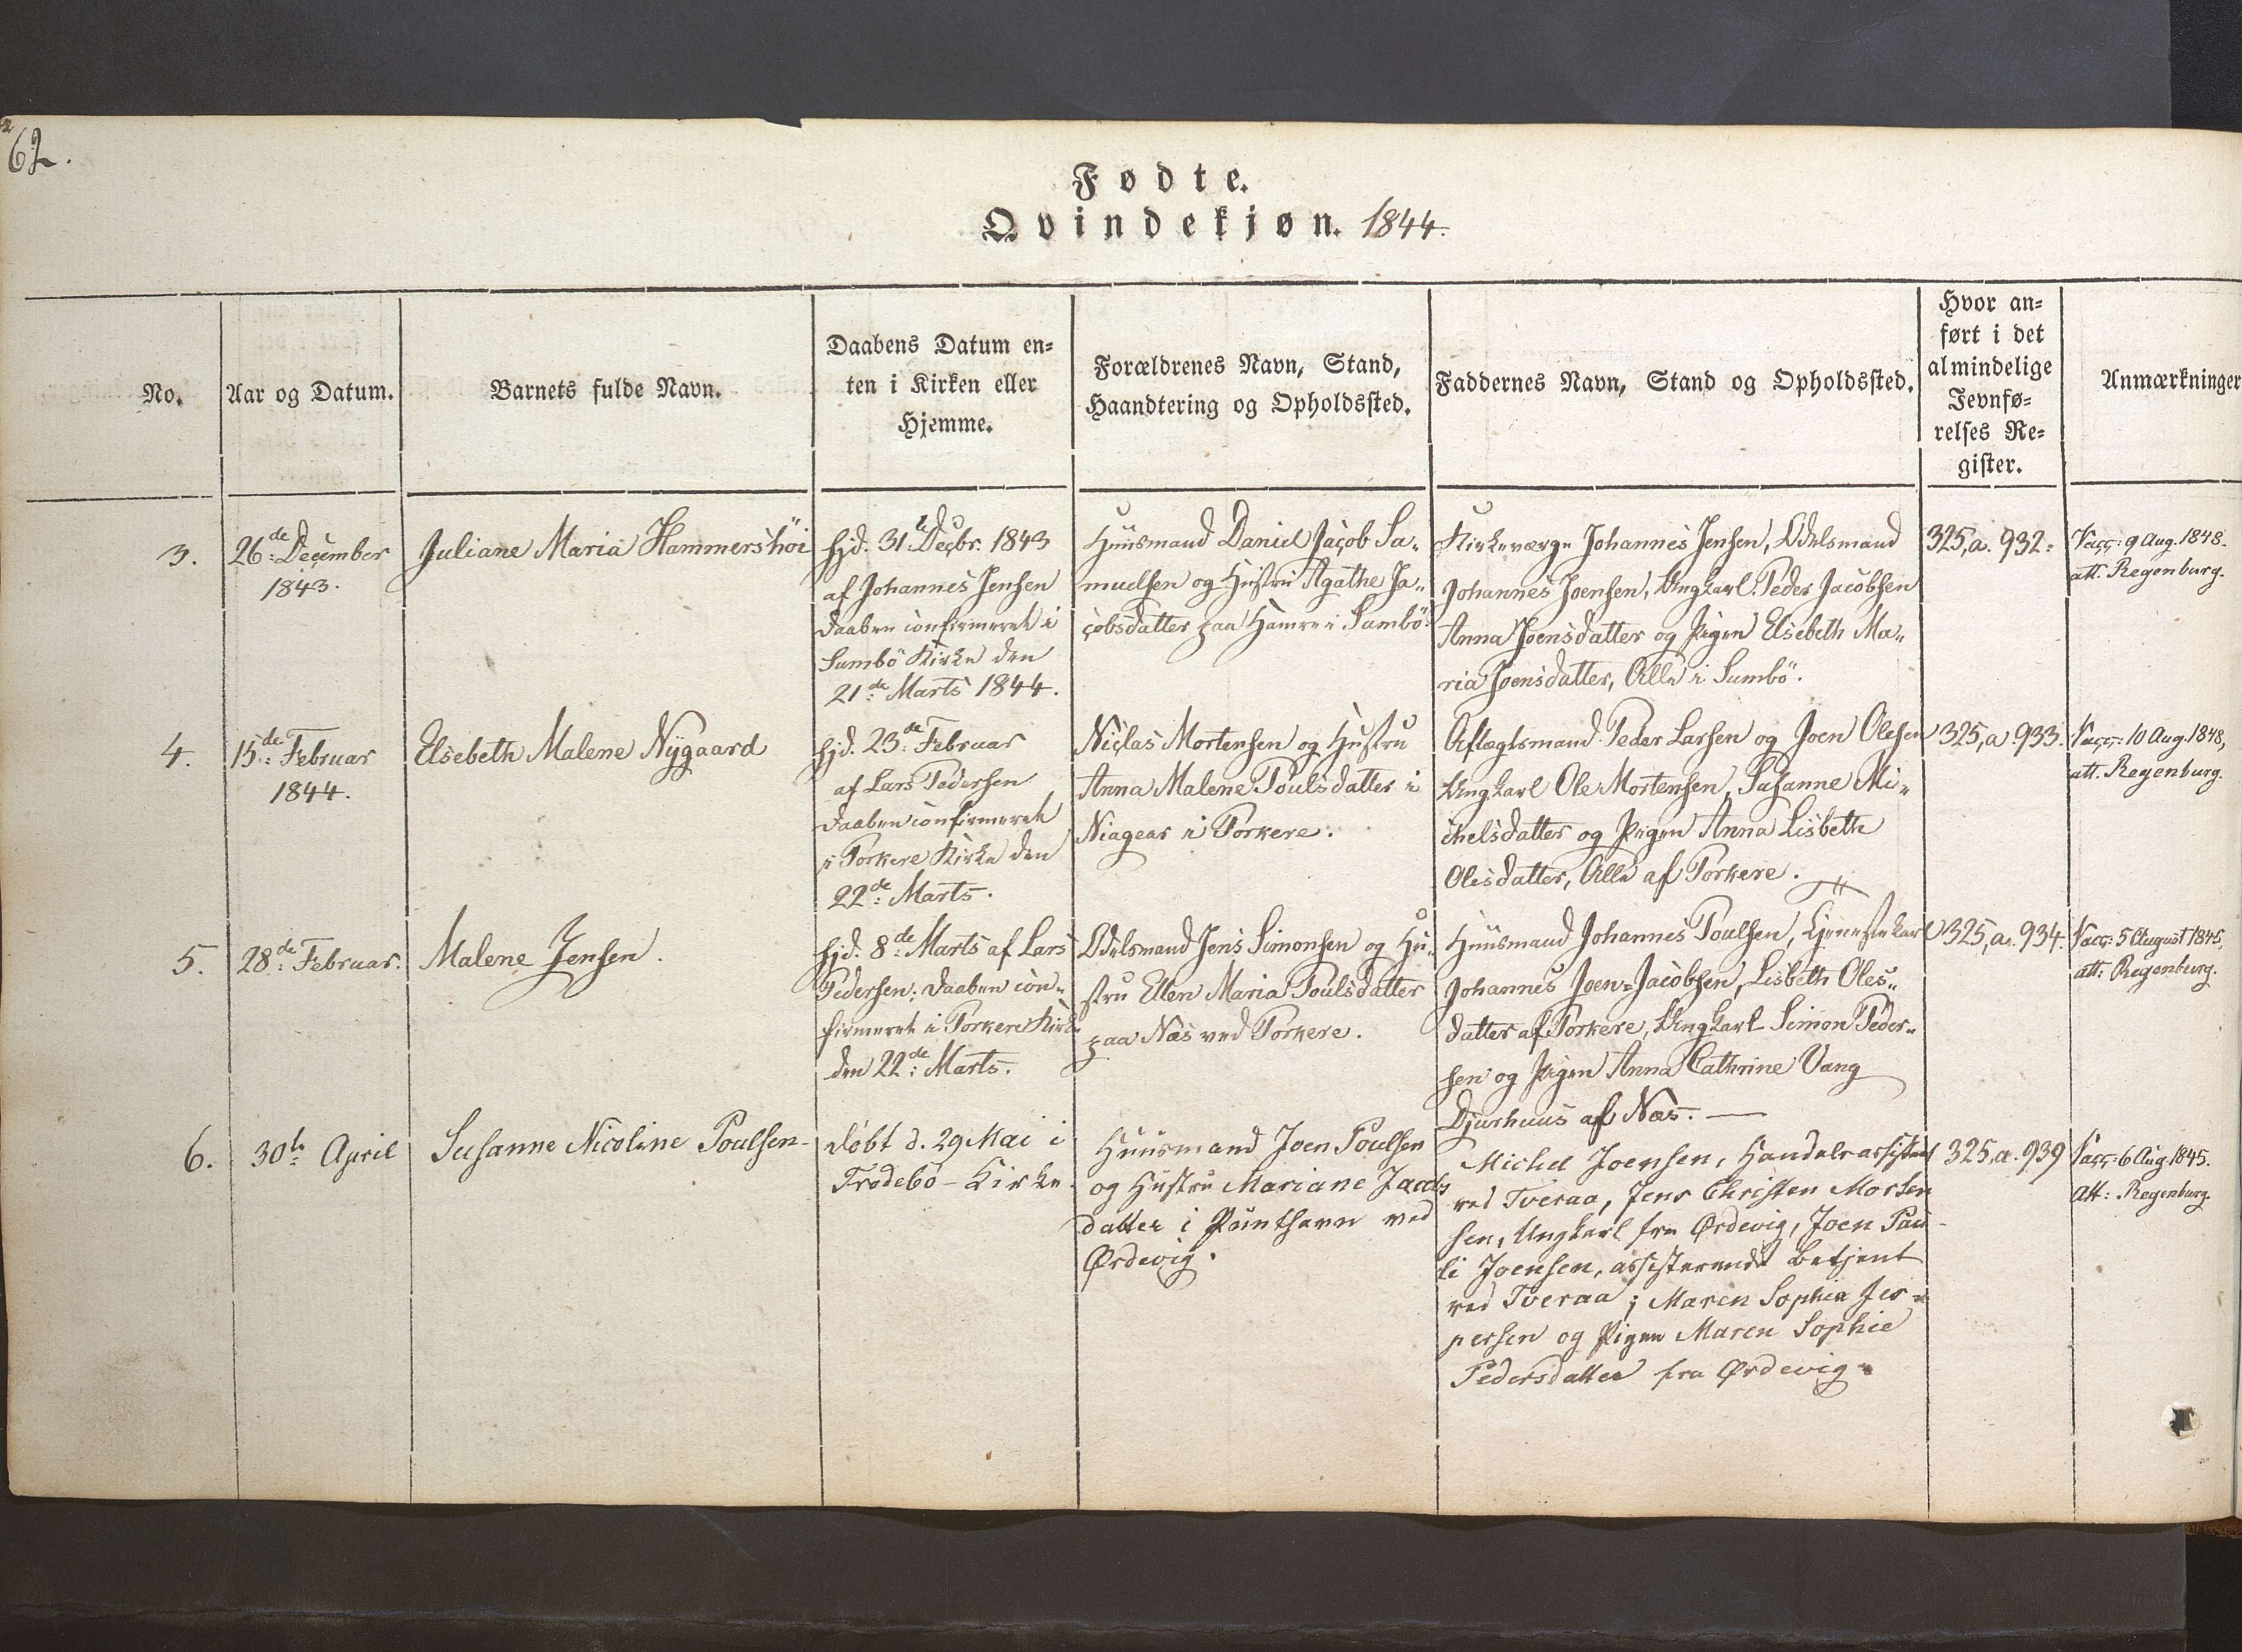 62.
Fødte.
Qvindekjøn. 1844.
No.
Aar og Datum.
Barnets fulde Navn.
Daabens Datum en=
ten i Kirken eller
Hjemme.
Forældrenes Navn, Stand,
Haandtering og Opholdssted.
Faddernes Navn, Stand og Opholdssted.
Hvor an=
ført i det
almindelige
Jevnfø=
relses Re=
gister.
Anmærkninger
3.
26de December
1843.
Juliane Maria Hammershöi
Hjd. 31te Decbr. 1843
af Johannes Jensen
Daaben confirmeret i
Sumbö Kirke den
21de Marts 1844.
Huusmand Daniel Jacob Sa„
muelsen og Hustru Agathe Ja„
cobsdatter paa Hamre i Sumbö.
Kirkeværge Johannes Jensen, Odelsmand
Johannes Joensen, Ungkarl Peder Jacobsen
Anna Joensdatter og Pigen Elsebeth Ma„
ria Joensdatter, Alle i Sumbö.
325,a. 932.
Vacc: 9 Aug. 1848.
att. Regenburg.
4.
15de Februar
1844.
Elsebeth Malene Nÿgaard
Hjd. 23de Februar
af Lars Pedersen
Daaben confirmeret
i Porkere Kirke den
22de Marts.
Niclas Mortensen og Hustru
Anna Malene Poulsdatter i
Niagear i Porkere.
Aftægtsmand Peder Larsen og Joen Olesen
Ungkarl Ole Mortensen, Susanne Mi„
chelsdatter og Pigen Anna Lisbeth
Olesdatter, Alle af Porkere.
325,a. 933.
Vacc: 10 Aug. 1848,
att. Regenburg.
5.
28de Februar.
Malene Jensen.
Hjd. 8de Marts af Lars
Pedersen; Daaben con„
firmeret i Porkere Kirke
den 22de Marts.
Odelsmand Jens Simonsen og Hu„
stru Ellen Maria Poulsdatter
paa Næs ved Porkere.
Huusmand Johannes Poulsen, Tjenestekarl
Johannes Joen=Jacobsen, Lisbeth Oles„
datter af Porkere, Ungkarl Simon Peder„
sen og Pigen Anna Cathrine Vang
Djurhuus af Næs.
325,a. 934.
Vacc: 5 August 1845,
att: Regenburg.
6.
30te April
Susanne Nicoline Poulsen
Döbt d. 29 Mai i
Frodebö-Kirke.
Huusmand Joen Poulsen
og Hustru Mariane Jacobs
datter i Punthavn ved
Ørdevig.
Michel Joensen, Handelsassistent
ved Tveraa, Jens Christen Morten
sen, Ungkarl fra Ørdevig, Joen Pau-
li Joensen, assisterende Betjent
ved Tveraa; Maren Sophia Jes=
persen og Pigen Maren Sophie
Pedersdatter fra Ørdevig.
325,a. 939
Vacc: 6 Aug. 1845.
Att: Regenburg.